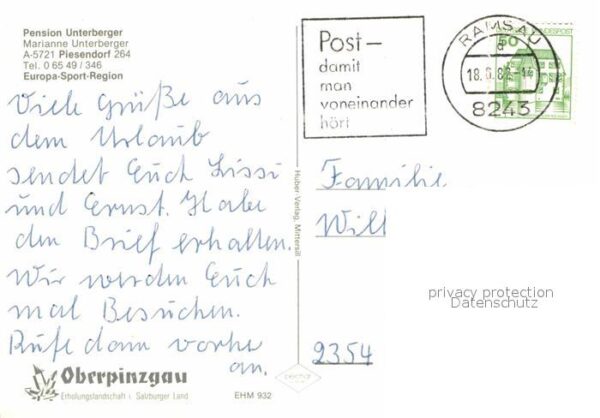 Pension Unterberger
Marianne Unterberger
A-5721 Piesendorf 264
Tel. 0 65 49 / 346
Europa-Sport-Region
Viele Grüße aus
dem Urlaub
sendet Euch Lissi
und Ernst. Habe
den Brief erhalten.
Wir werden Euch
mal Besuchen.
Rufe dann vorher
an.
Oberpinzgau
Erholungslandschaft i. Salzburger Land
EHM 932
Huber Verlag, Mittersill
Post –
damit
man
voneinander
hört
RAMSAU
a
18.6.82
8243
50
BUNDESPOST
Familie
Will
privacy protection
Datenschutz
2354